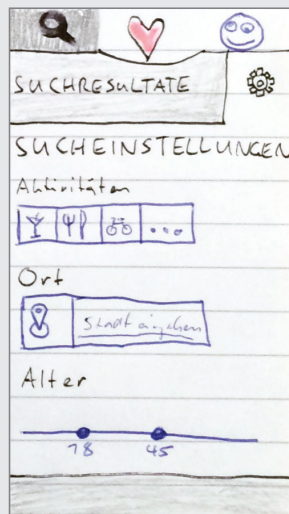 SUCHRESULTATE
SUCHEINSTELLUNGEN
Aktivitäten
...
Ort
Stadt eingeben
Alter
18 45